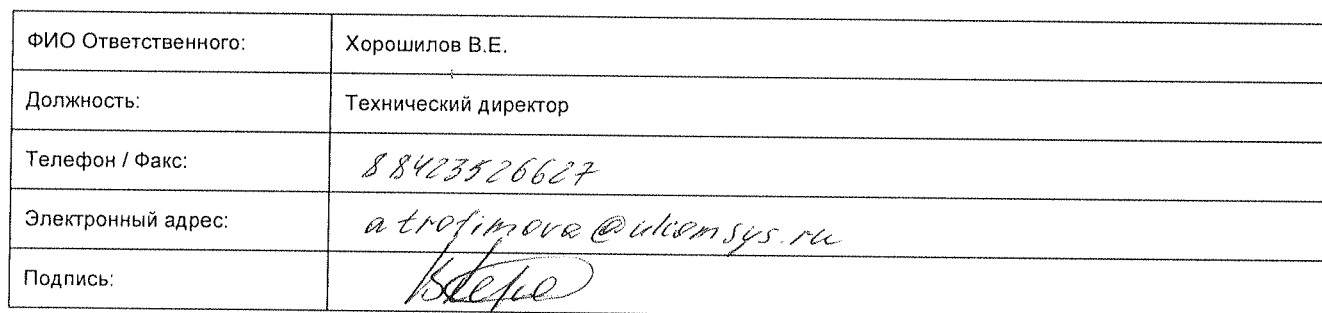 ФИО Ответственного: Хорошилов В.Е.
Должность: Технический директор
Телефон / Факс: 88423526627
Электронный адрес: atrofimova@ukomsys.ru
Подпись: